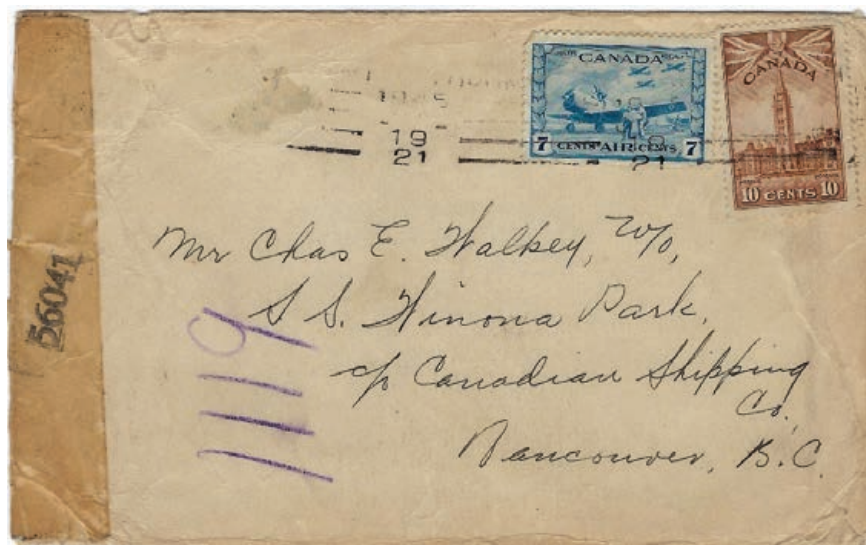 CANADA
7 CENTS AIR CENTS 7
CANADA
10 CENTS 10
19
21
21
56041
1119
Mr Chas E. Walkey, W/O,
S S. Winona Park,
c/o Canadian Shipping
Co,
Vancouver, B.C.